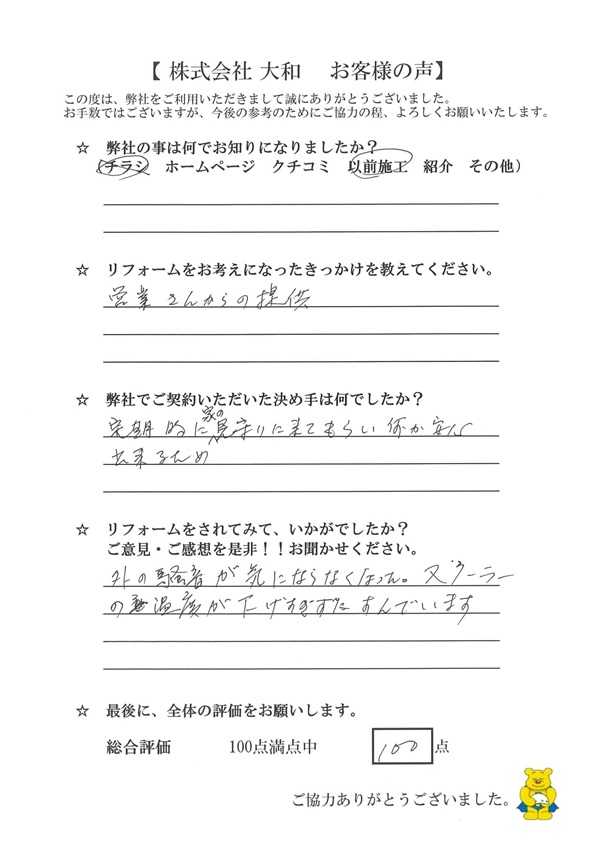 【 株式会社 大和　お客様の声】
この度は、弊社をご利用いただきまして誠にありがとうございました。
お手数ではございますが、今後の参考のためにご協力の程、よろしくお願いいたします。
☆ 弊社の事は何でお知りになりましたか？
（チラシ　ホームページ　クチコミ　以前施工　紹介　その他）
☆ リフォームをお考えになったきっかけを教えてください。
営業さんからの提供
☆ 弊社でご契約いただいた決め手は何でしたか？
定期的に家の見守りに来てもらい何か安心
出来るため
☆ リフォームをされてみて、いかがでしたか？
ご意見・ご感想を是非！！お聞かせください。
外の騒音が気にならなくなった。又クーラー
の温度が下げすぎずにすんでいます
☆ 最後に、全体の評価をお願いします。
総合評価　100点満点中　100 点
ご協力ありがとうございました。